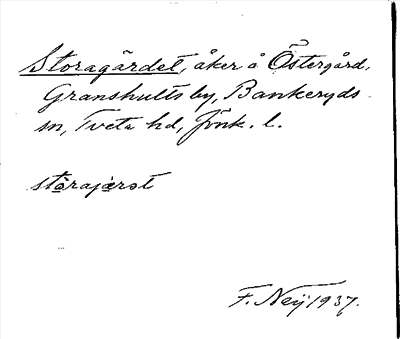 Storagärdet, åker å Östergård,
Granshults by, Bankeryds
sn, Tveta hd, Jönk. l.
stårajærət
F. Neij 1937.